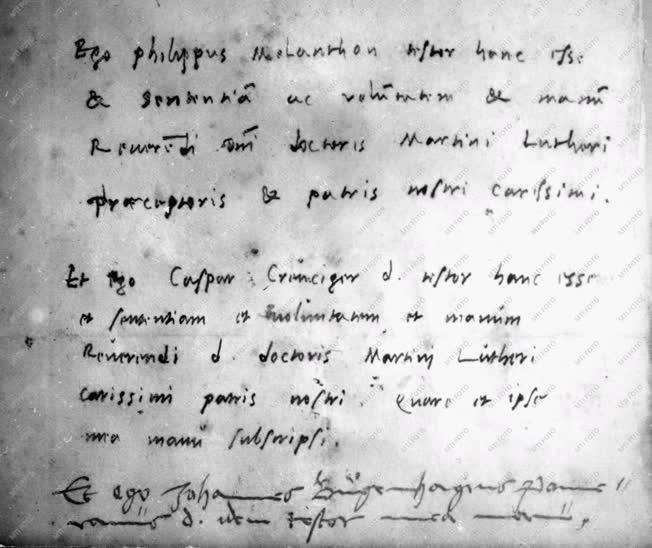 Ego philippus Melanthon testor hanc esse
& sententiā ac volūtatem & manū
Reverēdi dn̄i doctoris Martini Lutheri
præceptoris & patris nostri carissimi.
Et ego Caspar Creuciger d. testor hanc esse
et sententiam et voluntatem et manum
Reuerendi d. doctoris Martinj Lutheri
carissimi patris nostri. Quare et ipse
mea manu subscripsi.
Et ego Johannes Bugenhagius Pome
ranus d. idem testor mea manu